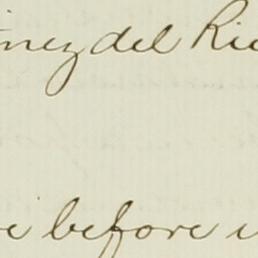 inez del Ri
e before